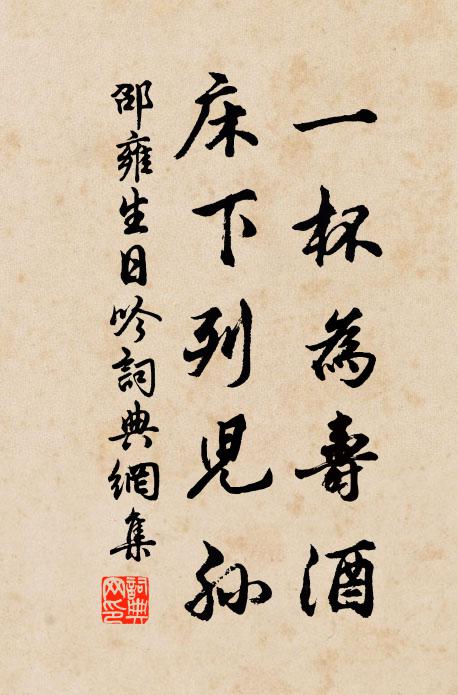 一杯為壽酒
床下列児孫
邵雍生日吟詞典網集
詞典
网印